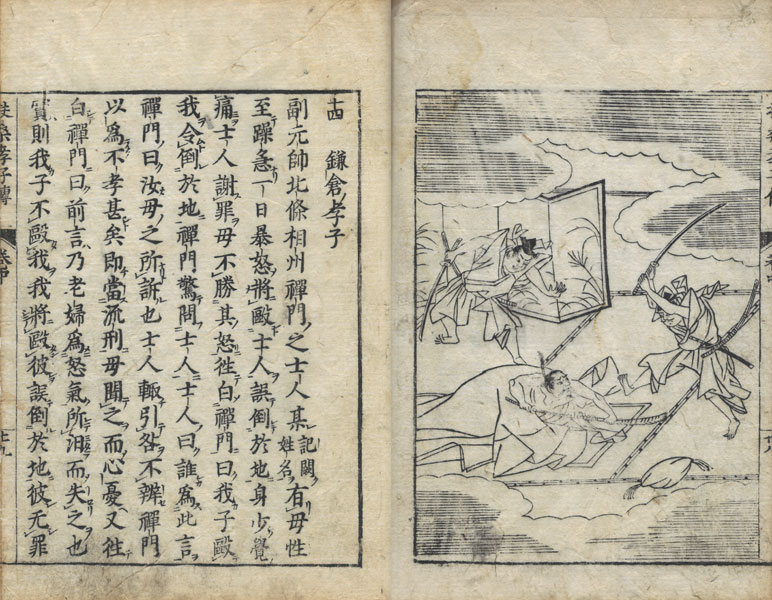 十四 鎌倉孝子
副元帥北條相州禪門之士人某記闕姓名有母性
至躁急一日暴怒將毆士人誤倒於地身少覺
痛士人謝罪母不勝其怒徃白禪門曰我子毆
我令倒於地禪門驚問士人士人曰誰爲此言
禪門曰汝母之所訴也士人輙引咎不辨禪門
以爲不孝甚矣即當流刑母聞之而心憂又徃
白禪門曰前言乃老婦爲怒氣所汨而失之也
實則我子不毆我我將毆彼誤倒於地彼无罪
扶桑孝子傳 卷中